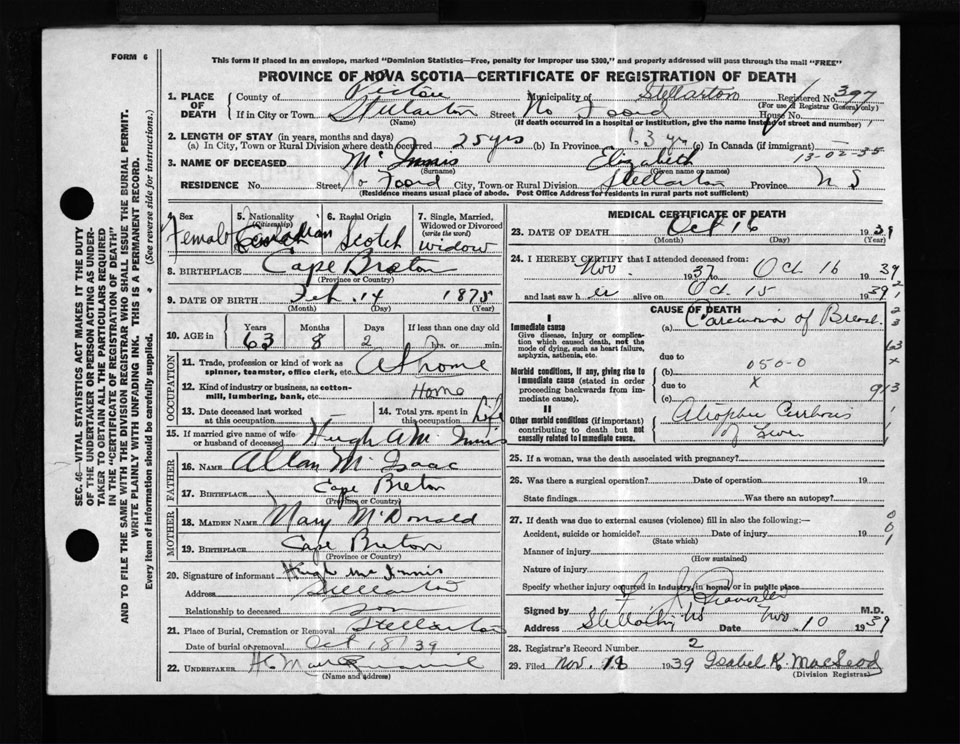 FORM 6
This form if placed in an envelope, marked "Dominion Statistics—Free, penalty for improper use $300," and properly addressed will pass through the mail "FREE"
PROVINCE OF NOVA SCOTIA—CERTIFICATE OF REGISTRATION OF DEATH
1. PLACE OF DEATH County of Pictou Municipality of Stellarton Registered No. 397
(For use of Registrar General only)
If in City or Town Stellarton Street No Foord House No.
(Name) (If death occurred in a hospital or institution, give the name instead of street and number)
2. LENGTH OF STAY (in years, months and days)
(a) In City, Town or Rural Division where death occurred 25 yrs (b) In Province 63 yr (c) In Canada (if immigrant)
13-02-35
3. NAME OF DECEASED McInnis Elizabeth
(Surname) (Given name or names)
RESIDENCE No. Street No Foord City, Town or Rural Division Stellarton Province N S
(Residence means usual place of abode. Post Office Address for residents in rural parts not sufficient)
4. Sex Female
5. Nationality (Citizenship) Canadian
6. Racial Origin Scotch
7. Single, Married, Widowed or Divorced (write the word) Widow
8. BIRTHPLACE Cape Breton
(Province or Country)
9. DATE OF BIRTH Feb. 14 1875
(Month) (Day) (Year)
10. AGE in Years 63 Months 8 Days 2 If less than one day old hrs. or min.
OCCUPATION
11. Trade, profession or kind of work as spinner, teamster, office clerk, etc. At home
12. Kind of industry or business, as cotton-mill, lumbering, bank, etc. Home
13. Date deceased last worked at this occupation
14. Total yrs. spent in this occupation Life
15. If married give name of wife or husband of deceased Hugh A McInnis
FATHER
16. NAME Allan McIsaac
17. BIRTHPLACE Cape Breton
(Province or Country)
MOTHER
18. MAIDEN NAME Mary McDonald
19. BIRTHPLACE Cape Breton
(Province or Country)
20. Signature of informant Hugh McInnis
Address Stellarton
Relationship to deceased Son
21. Place of Burial, Cremation or Removal Stellarton
Date of burial or removal Oct 18/39
22. UNDERTAKER
(Name and address)
MEDICAL CERTIFICATE OF DEATH
23. DATE OF DEATH Oct 16 1939
(Month) (Day) (Year)
24. I HEREBY CERTIFY that I attended deceased from:
Nov. 1937 Oct 16 1939
and last saw her alive on Oct 15 1939
CAUSE OF DEATH
I
Immediate cause
Give disease, injury or complication which caused death, not the mode of dying, such as heart failure, asphyxia, asthenia, etc.
(a) Carcinoma of Breast
due to
Morbid conditions, if any, giving rise to immediate cause (stated in order proceeding backwards from immediate cause).
(b) 050-0
due to X
(c)
II
Other morbid conditions (if important) contributing to death but not causally related to immediate cause.
Atrophic Cirrhosis
of Liver
25. If a woman, was the death associated with pregnancy?
26. Was there a surgical operation? Date of operation 19
State findings Was there an autopsy?
27. If death was due to external causes (violence) fill in also the following:—
Accident, suicide or homicide? Date of injury 19
(State which)
Manner of injury
(How sustained)
Nature of injury
Specify whether injury occurred in industry, in home, or in public place
Signed by M.D.
Address Stellarton NS Date Nov 10 1939
28. Registrar's Record Number 2
29. Filed Nov. 18 1939 Isabel K. MacLeod
(Division Registrar)
SEC. 46—VITAL STATISTICS ACT MAKES IT THE DUTY
OF THE UNDERTAKER OR PERSON ACTING AS UNDER-
TAKER TO OBTAIN ALL THE PARTICULARS REQUIRED
IN THE "CERTIFICATE OF REGISTRATION OF DEATH"
AND TO FILE THE SAME WITH THE DIVISION REGISTRAR WHO SHALL ISSUE THE BURIAL PERMIT.
WRITE PLAINLY WITH UNFADING INK. THIS IS A PERMANENT RECORD.
Every item of information should be carefully supplied. (See reverse side for instructions.)